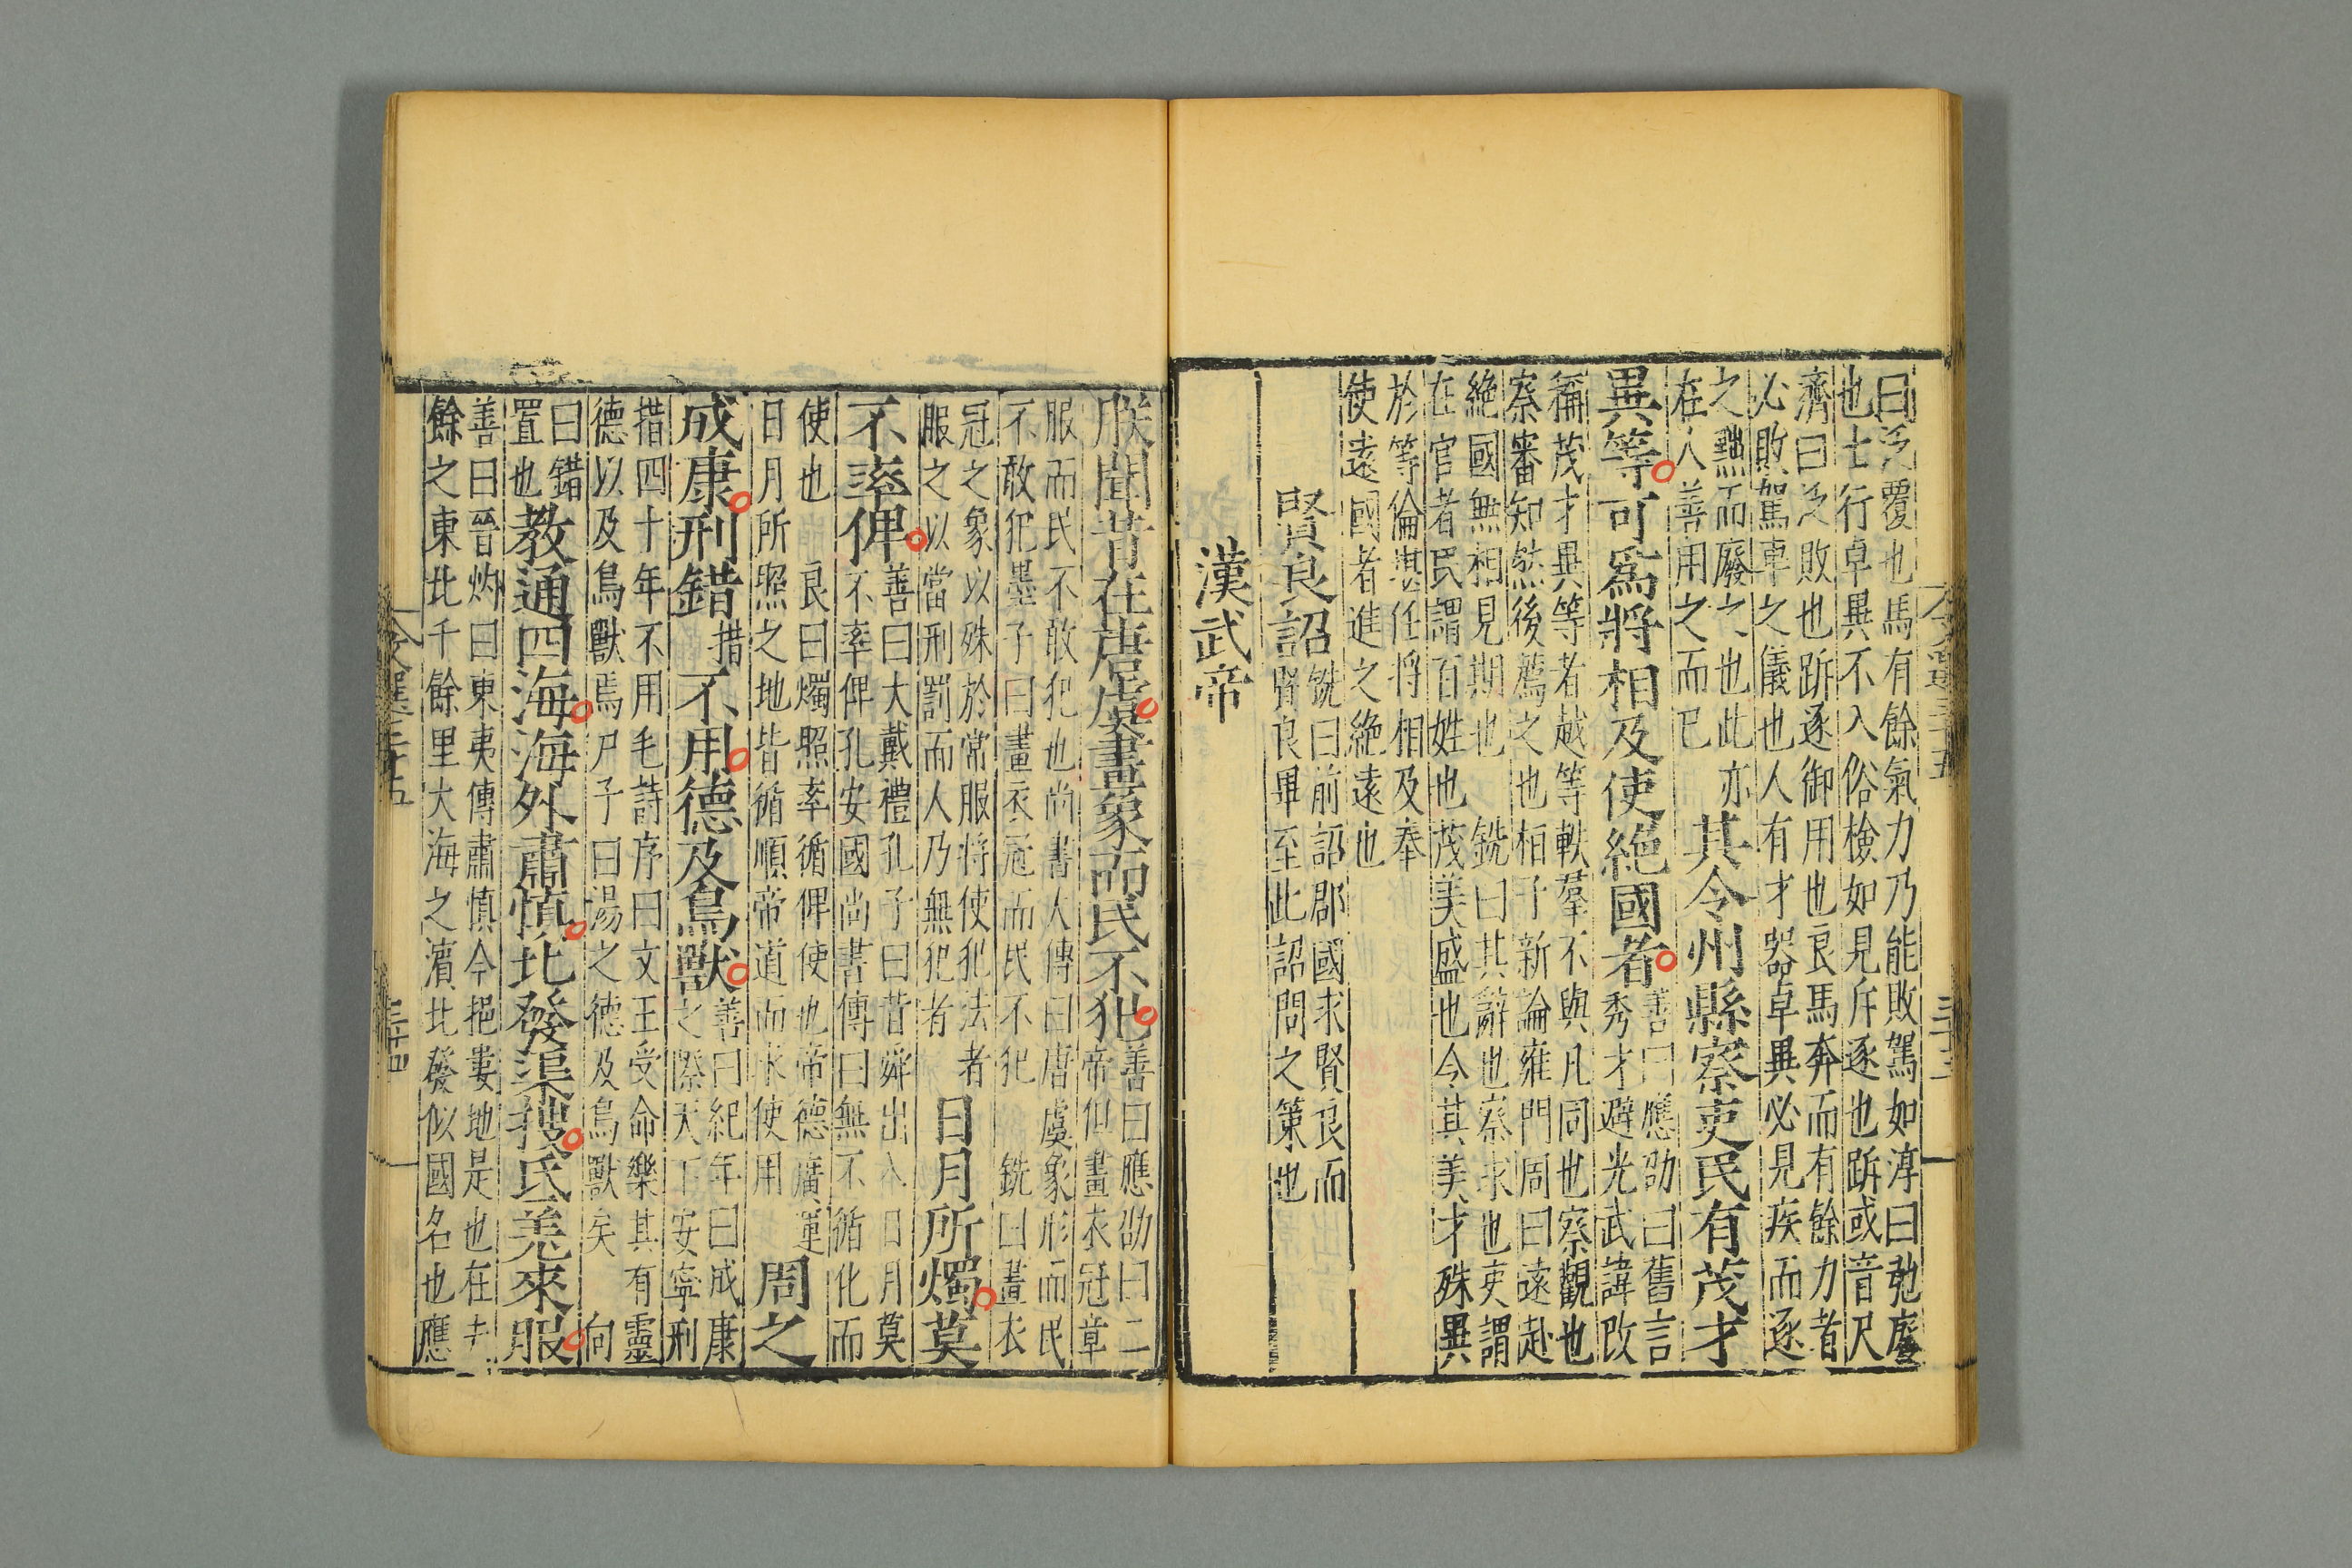 曰泛覆也馬有餘氣力乃能敗駕如淳曰弛廢
也士行卓異不入俗檢如見斥逐也跅或音尺
濟曰泛敗也跅逐御用也良馬奔而有餘力者
必敗駕車之儀也人有才器卓異必見疾而逐
之黜而廢之也此亦
在人善用之而已
其令州縣察吏民有茂才
異等可爲將相及使絕國者
善曰應劭曰舊言
秀才避光武諱改
稱茂才異等者越等軼羣不與凡同也察觀也
察審知然後薦之也桓子新論雍門周曰遠赴
絕國無相見期也 銑曰其辭也察求也吏謂
在官者民謂百姓也茂美盛也今其美才殊異
於等倫堪任將相及奉
使遠國者進之絕遠也
賢良詔
銑曰前詔郡國求賢良而
賢良畢至此詔問之策也
漢武帝
朕聞昔在唐虞畫象而民不犯
善曰應劭曰二
帝但畫衣冠章
服而民不敢犯也尚書大傳曰唐虞象形而民
不敢犯墨子曰畫衣冠而民不犯 銑曰畫衣
冠之象以殊於常服將使犯法者
服之以當刑罰而人乃無犯者
日月所燭莫
不率俾
善曰大戴禮孔子曰昔舜出入日月莫
不率俾孔安國尚書傳曰無不循化而
使也 良曰燭照率循俾使也帝德廣運
日月所照之地皆循順帝道而來使用
周之
成康刑錯
措
不用德及鳥獸
善曰紀年曰成康
之際天下安寧刑
措四十年不用毛詩序曰文王受命樂其有靈
德以及鳥獸焉尸子曰湯之德及鳥獸矣 向
曰錯
置也
教通四海海外肅慎北發渠搜氐羌來服
善曰晉灼曰東夷傳肅慎今挹婁地是也在夫
餘之東北千餘里大海之濱北發似國名也應